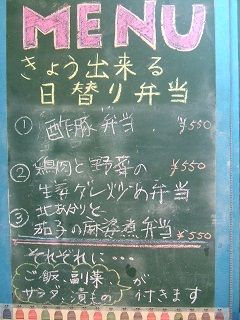 MENU
きょう出来る
日替り弁当
① 酢豚弁当 ¥550
② 鶏肉と野菜の ¥550
生姜グレ炒め弁当
③ 北あかりと
茄子の麻婆煮弁当 ¥550
それぞれに…
ご飯、副菜、が
サラダ、漬もの 付きます